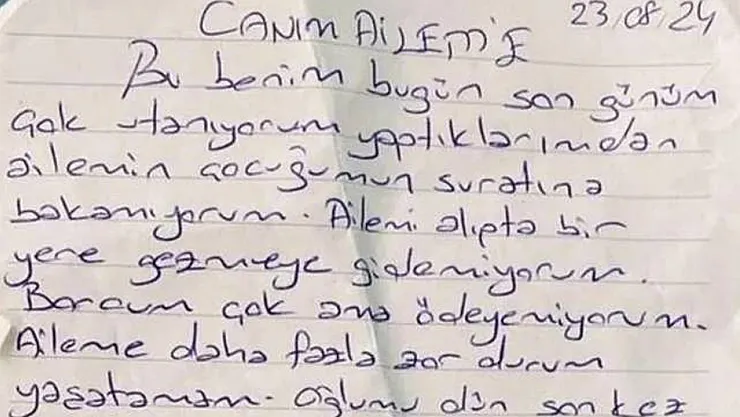 CANIM AİLEM'E 23/08/24
Bu benim bugün son günüm
Çok utanıyorum yaptıklarımdan
ailemin çocuğumun suratına
bakamıyorum. Ailemi alıpta bir
yere gezmeye gidemiyorum.
Borcum çok ama ödeyemiyorum.
Aileme daha fazla zor durum
yaşatamam. Oğlumu dün son kez